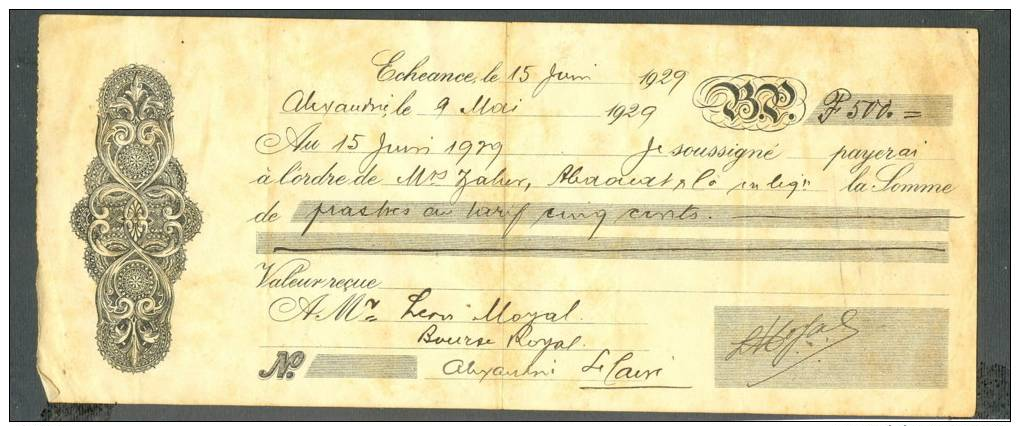 Echéance, le 15 Juin 1929
Alexandrie, le 9 Mai 1929
B.P. F 500. =
Au 15 Juin 1929 Je soussigné payerai
à l'ordre de Mrs Zaher, & Co en liqn la Somme
de piastres au tarif cinq cents.
Valeur reçue
A Mr Léon Moyal
Bourse Royal
No. Alexandrie Le Caire